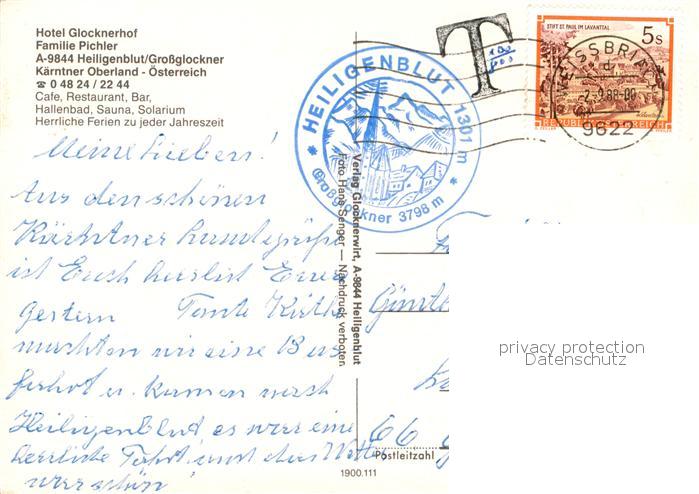 Hotel Glocknerhof
Familie Pichler
A-9844 Heiligenblut/Großglockner
Kärntner Oberland - Österreich
☎ 0 48 24 / 22 44
Cafe, Restaurant, Bar,
Hallenbad, Sauna, Solarium
Herrliche Ferien zu jeder Jahreszeit
T
STIFT ST. PAUL IM LAVANTTAL
5s
9622
* HEILIGENBLUT 1301 m *
Großglockner 3798 m
Meine Lieben!
Aus den schönen
Kärntner
ist Euch herzlist Eure
Tante Käthe
gestern
machten wir eine Bus
fahrt u. kamen nach
Heiligenblut es war eine
herrliche Fahrt und das Wetter
war schön
Verlag Glocknerwirt, A-9844 Heiligenblut
Foto Hans Senger — Nachdruck verboten
66
Postleitzahl
1900.111
privacy protection
Datenschutz